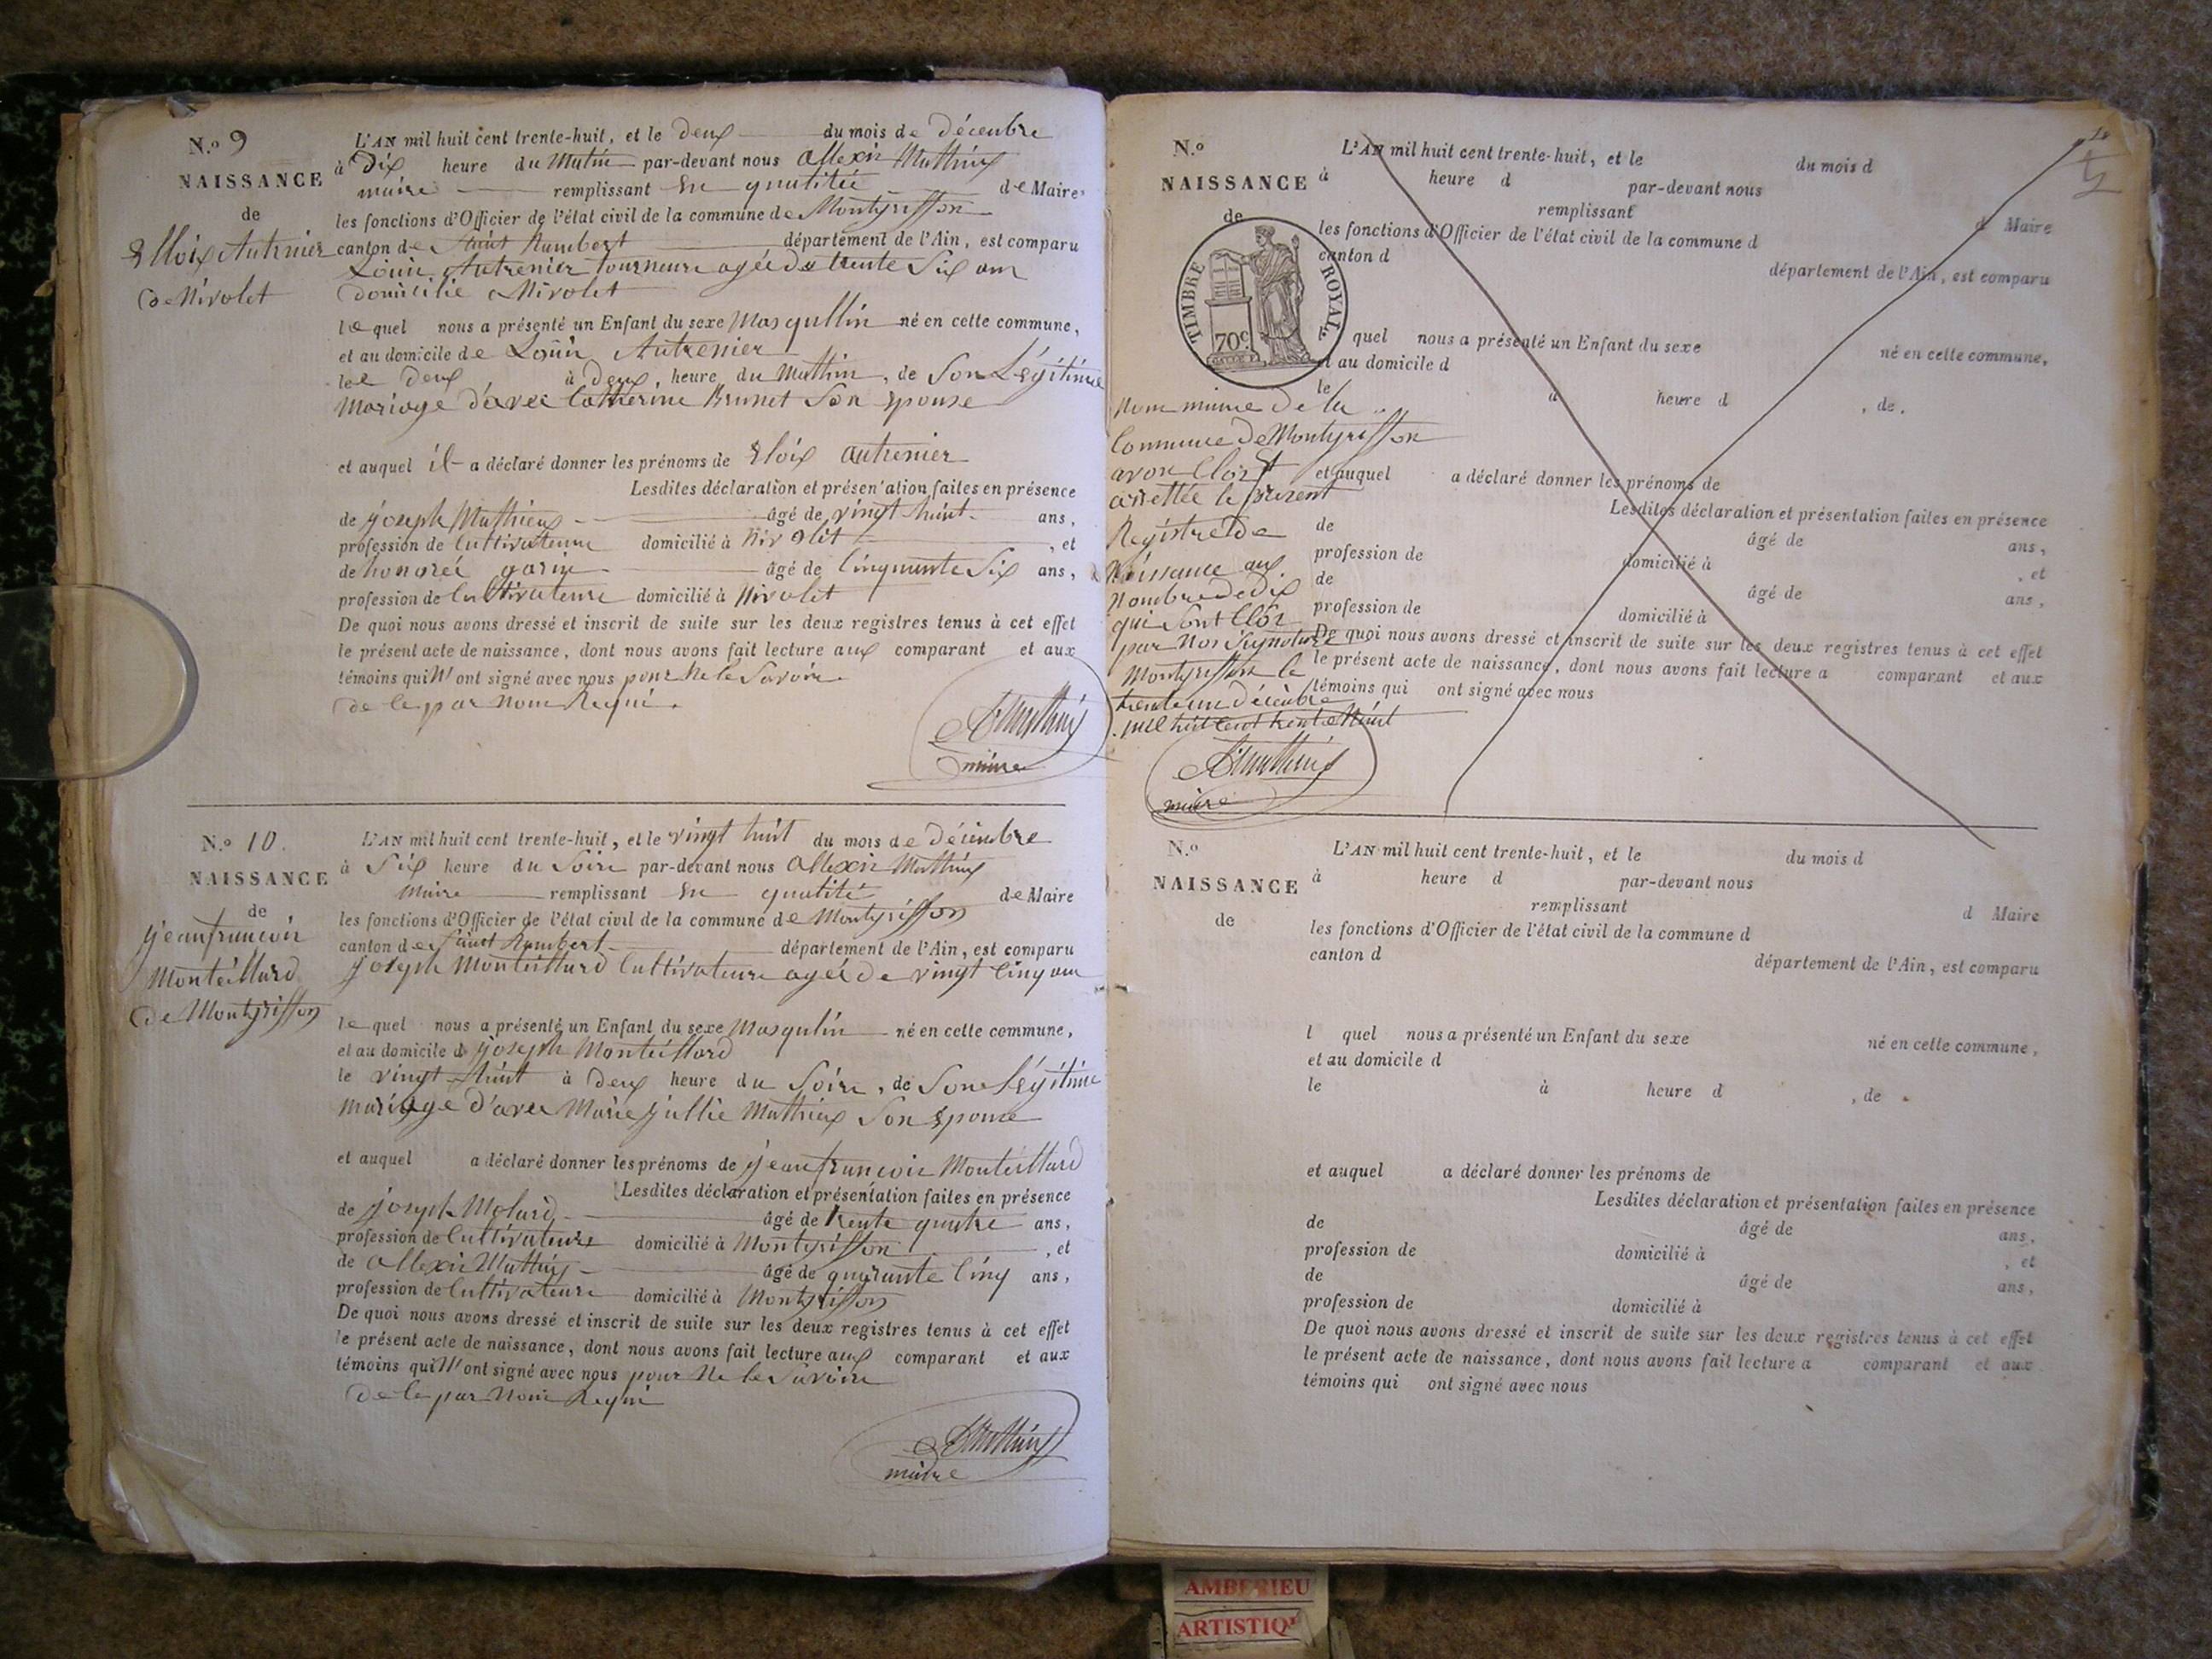 N.o 9
NAISSANCE
de
Elloix Autrenier
de Nivolet
L'AN mil huit cent trente-huit, et le deux du mois de décembre
à Dix heure du Matin par-devant nous Allexis Mathieux
maire remplissant en qualitée de Maire
les fonctions d'Officier de l'état civil de la commune de Montgriffon
canton de Saint Rambert département de l'Ain, est comparu
Louis Autrenier tourneure agée de trente Six ans
domicilié a Nivolet
lequel nous a présenté un Enfant du sexe Masqullin né en cette commune,
et au domicile de Louis Autrenier
le deux à deux, heure du Mathin, de Son Légitime
Mariage d'avec Catherine Brunet Son Epouse
et auquel il a déclaré donner les prénoms de Eloix autrenier
Lesdites déclaration et présen'ation faites en présence
de joseph Mathieux âgé de vingt huit ans,
profession de Cultivateure domicilié à Nivolet, et
de honoreé garin âgé de Cinquente Six ans,
profession de Cultivateure domicilié à Nivolet
De quoi nous avons dressé et inscrit de suite sur les deux registres tenus à cet effet
le présent acte de naissance, dont nous avons fait lecture aux comparant et aux
témoins qui N'ont signé avec nous pour Ne le Savoire
de le par Nous Requi.
AMathieux
maire
N.o 10.
NAISSANCE
de
jeanfrancois
Monteillard
de Montgriffon
L'AN mil huit cent trente-huit, et le vingt huit du mois de décembre
à Six heure du Soire par-devant nous Allexis Mathieux
Maire remplissant en qualité de Maire
les fonctions d'Officier de l'état civil de la commune de Montgriffon
canton de Saint Rambert département de l'Ain, est comparu
joseph Monteillard Cultivateure agée de vingt Cinq ans
lequel nous a présenté un Enfant du sexe Masqulin né en cette commune,
et au domicile d joseph Monteillard
le vingt huit à deux heure du Soire, de Son Légitime
Mariage d'avec Marie jullie Mathieux Son Epouse
et auquel a déclaré donner les prénoms de jeanfrancois Monteillard
Lesdites déclaration et présentation faites en présence
de joseph Molard âgé de trente quatre ans,
profession de Cultivateure domicilié à Montgriffon, et
de Allexis Mathieux âgé de quarante Cinq ans,
profession de Cultivateure domicilié à Montgriffon
De quoi nous avons dressé et inscrit de suite sur les deux registres tenus à cet effet
le présent acte de naissance, dont nous avons fait lecture aux comparant et aux
témoins qui N'ont signé avec nous pour Ne le Savoire
de le par Nous Requi
AMathieux
maire
N.o
NAISSANCE
de
TIMBRE ROYAL
70c.
L'AN mil huit cent trente-huit, et le du mois d
à heure d par-devant nous
remplissant d Maire
les fonctions d'Officier de l'état civil de la commune d
canton d département de l'Ain, est comparu
quel nous a présenté un Enfant du sexe né en cette commune,
et au domicile d
le à heure d , de
et auquel a déclaré donner les prénoms de
Lesdites déclaration et présentation faites en présence
de âgé de ans,
profession de domicilié à , et
de âgé de ans,
profession de domicilié à
De quoi nous avons dressé et inscrit de suite sur les deux registres tenus à cet effet
le présent acte de naissance, dont nous avons fait lecture a comparant et aux
témoins qui ont signé avec nous
Nous maire de la
Commune de Montgriffon
avon Clos et
arrettée le present
Registre de
Naissance aux
Nombre de dix
qui Sont Clos
par Nos Signature
Montgriffon le
trente un décembre
mil huit Cent trente Huit
AMathieux
maire
N.o
NAISSANCE
de
L'AN mil huit cent trente-huit, et le du mois d
à heure d par-devant nous
remplissant d Maire
les fonctions d'Officier de l'état civil de la commune d
canton d département de l'Ain, est comparu
l quel nous a présenté un Enfant du sexe né en cette commune,
et au domicile d
le à heure d , de
et auquel a déclaré donner les prénoms de
Lesdites déclaration et présentation faites en présence
de âgé de ans,
profession de domicilié à , et
de âgé de ans,
profession de domicilié à
De quoi nous avons dressé et inscrit de suite sur les deux registres tenus à cet effet
le présent acte de naissance, dont nous avons fait lecture a comparant et aux
témoins qui ont signé avec nous
AMBERIEU
ARTISTIQU